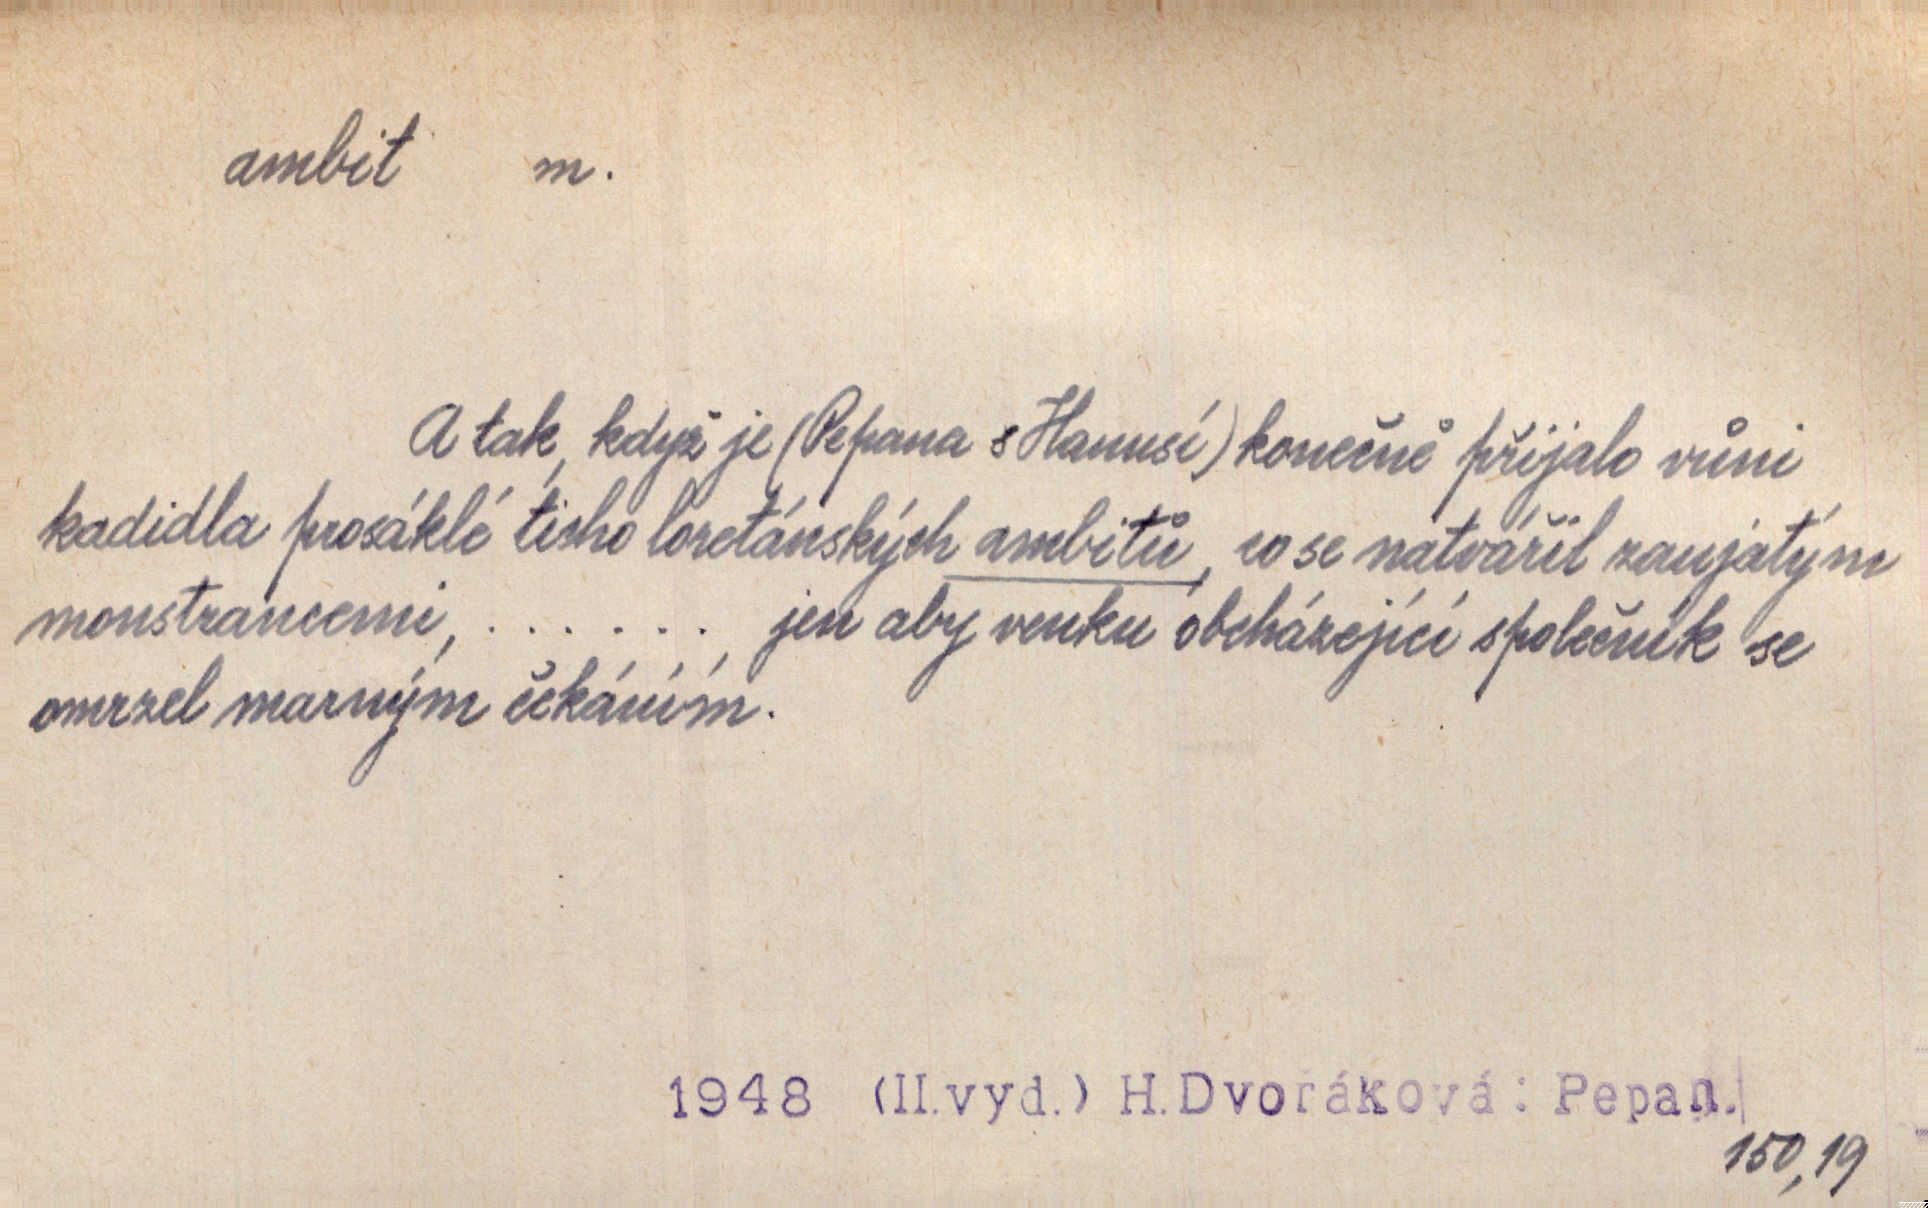 ambit m.
A tak, když je (Pepana s Hanusí) konečně přijalo vůni
kadidla prosáklé ticho loretánských ambitů, co se natvářil zaujatým
monstrancemi, . . . . . . . jen aby venku obcházející společník se
omrzel marným čekáním.
1948 (II.vyd.) H.Dvořáková: Pepan.
150,19